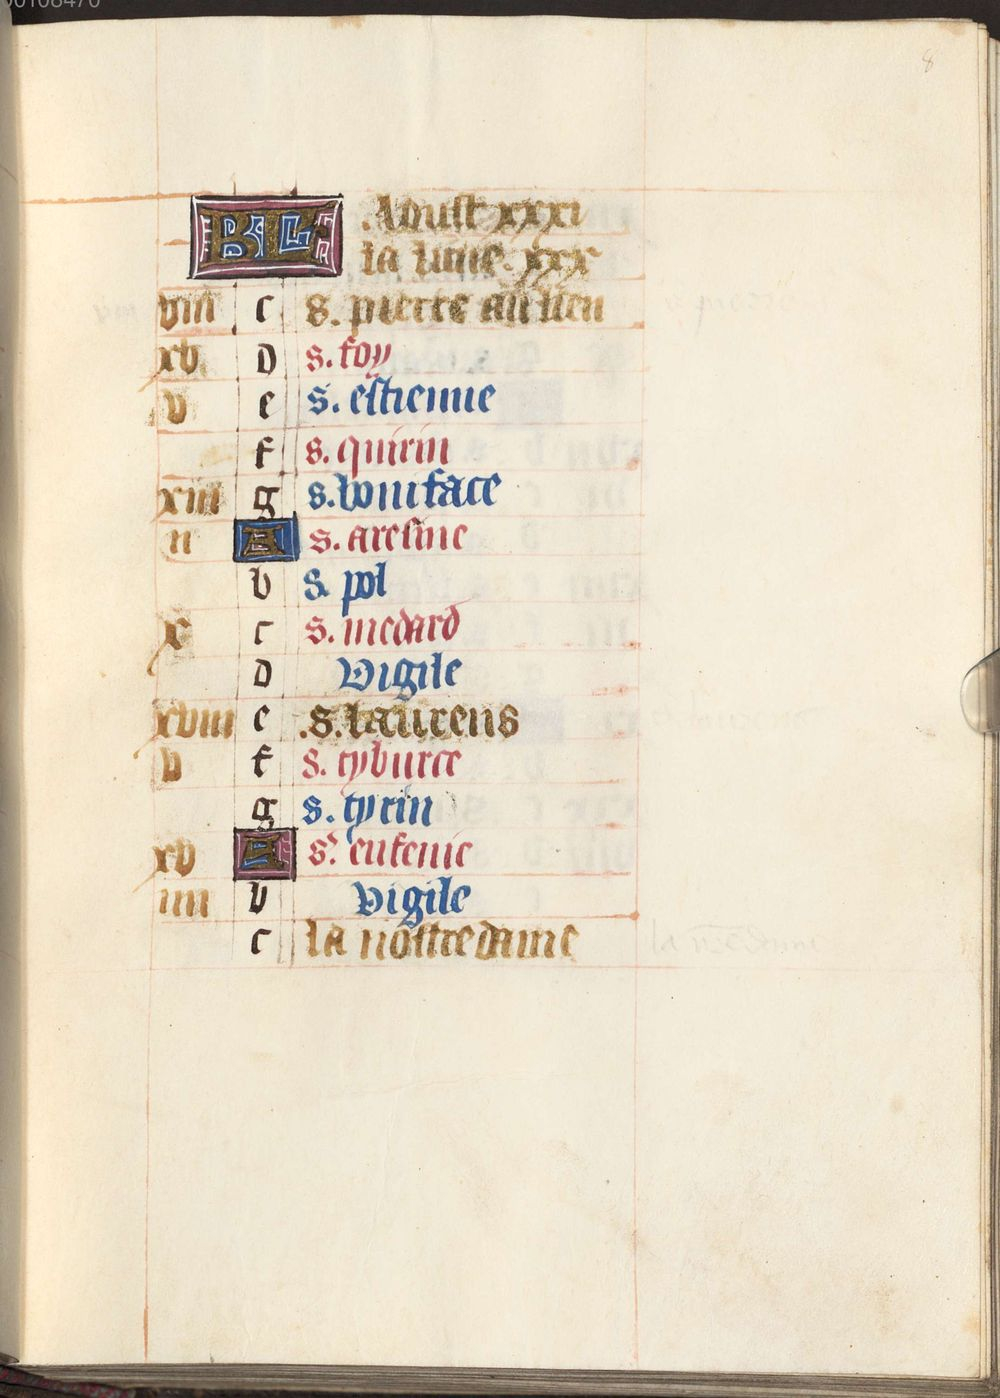 00108470
8
KL . Aoust xxxi
la lune . xxx
viii c S. pierre au lien
xv. D s. foy
v e s. estienne
f s. quirin
xiii g s. boniface
ii A s. aresme
b s. pol
x c s. medard
D Vigile
xviii e .S. laurens
v f s. tyburce
g s. tyrin
xv A s. eufenie
iiii b Vigile
c la nostre dame